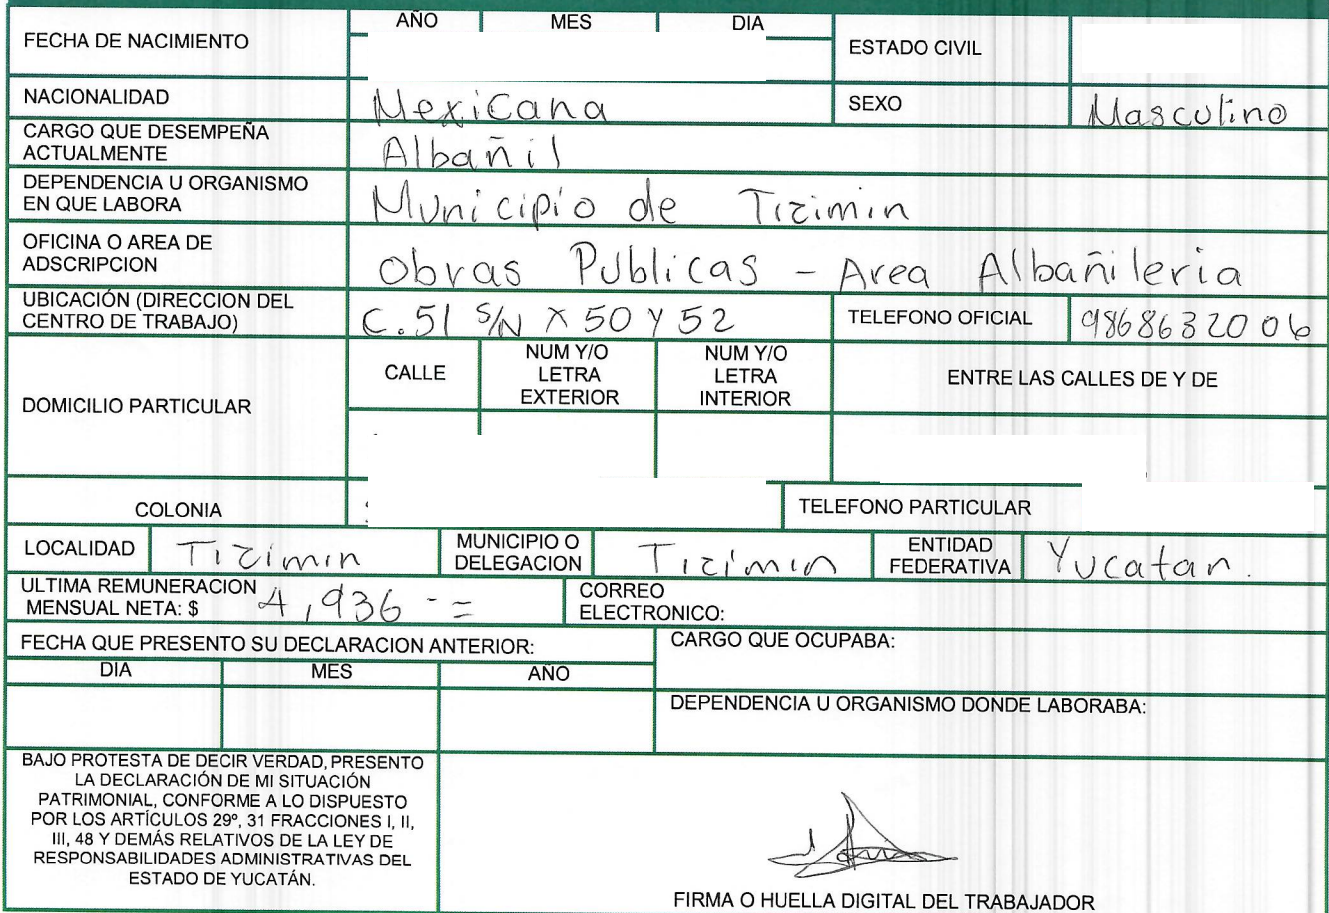 AÑO MES DIA
FECHA DE NACIMIENTO ESTADO CIVIL
NACIONALIDAD Mexicana SEXO Masculino
CARGO QUE DESEMPEÑA
ACTUALMENTE Albañil
DEPENDENCIA U ORGANISMO
EN QUE LABORA Municipio de Tizimin
OFICINA O AREA DE
ADSCRIPCION Obras Publicas - Area Albañileria
UBICACIÓN (DIRECCION DEL
CENTRO DE TRABAJO) C.51 S/N X 50 Y 52 TELEFONO OFICIAL 9868632006
DOMICILIO PARTICULAR
CALLE
NUM Y/O
LETRA
EXTERIOR
NUM Y/O
LETRA
INTERIOR
ENTRE LAS CALLES DE Y DE
COLONIA TELEFONO PARTICULAR
LOCALIDAD Tizimin
MUNICIPIO O
DELEGACION Tizimin
ENTIDAD
FEDERATIVA Yucatan.
ULTIMA REMUNERACION
MENSUAL NETA: $ 4,936 - =
CORREO
ELECTRONICO:
FECHA QUE PRESENTO SU DECLARACION ANTERIOR:
DIA MES AÑO
CARGO QUE OCUPABA:
DEPENDENCIA U ORGANISMO DONDE LABORABA:
BAJO PROTESTA DE DECIR VERDAD, PRESENTO
LA DECLARACIÓN DE MI SITUACIÓN
PATRIMONIAL, CONFORME A LO DISPUESTO
POR LOS ARTÍCULOS 29º, 31 FRACCIONES I, II,
III, 48 Y DEMÁS RELATIVOS DE LA LEY DE
RESPONSABILIDADES ADMINISTRATIVAS DEL
ESTADO DE YUCATÁN.
FIRMA O HUELLA DIGITAL DEL TRABAJADOR